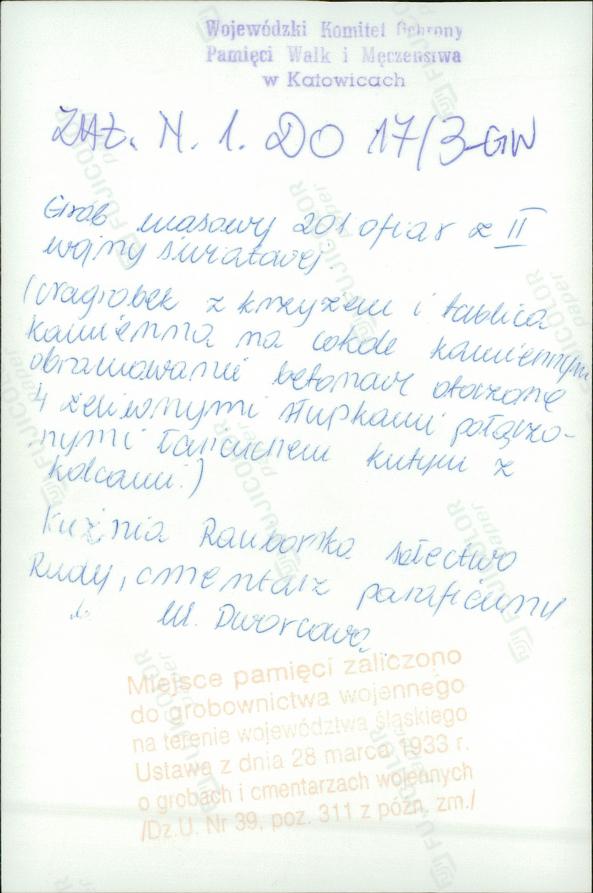 Wojewódzki Komitet Ochrony
Pamięci Walk i Męczeństwa
w Katowicach
ZAŁ. N. 1. DO 17/3-GW
Grób masowy 201 ofiar z II
wojny światowej.
(nagrobek z krzyżem i tablica
kamienna na cokole kamiennym
obramowanie betonowe otoczone
4 żeliwnymi słupkami połączo-
nymi łańcuchem kutym z
kolcami.)
Kuźnia Raciborska sołectwo
Rudy, cmentarz parafialny
ul. Dworcowa
Miejsce pamięci zaliczono
do grobownictwa wojennego
na terenie województwa śląskiego
Ustawa z dnia 28 marca 1933 r.
o grobach i cmentarzach wojennych
/Dz.U. Nr 39, poz. 311 z późn. zm./
FUJICOLOR
paper